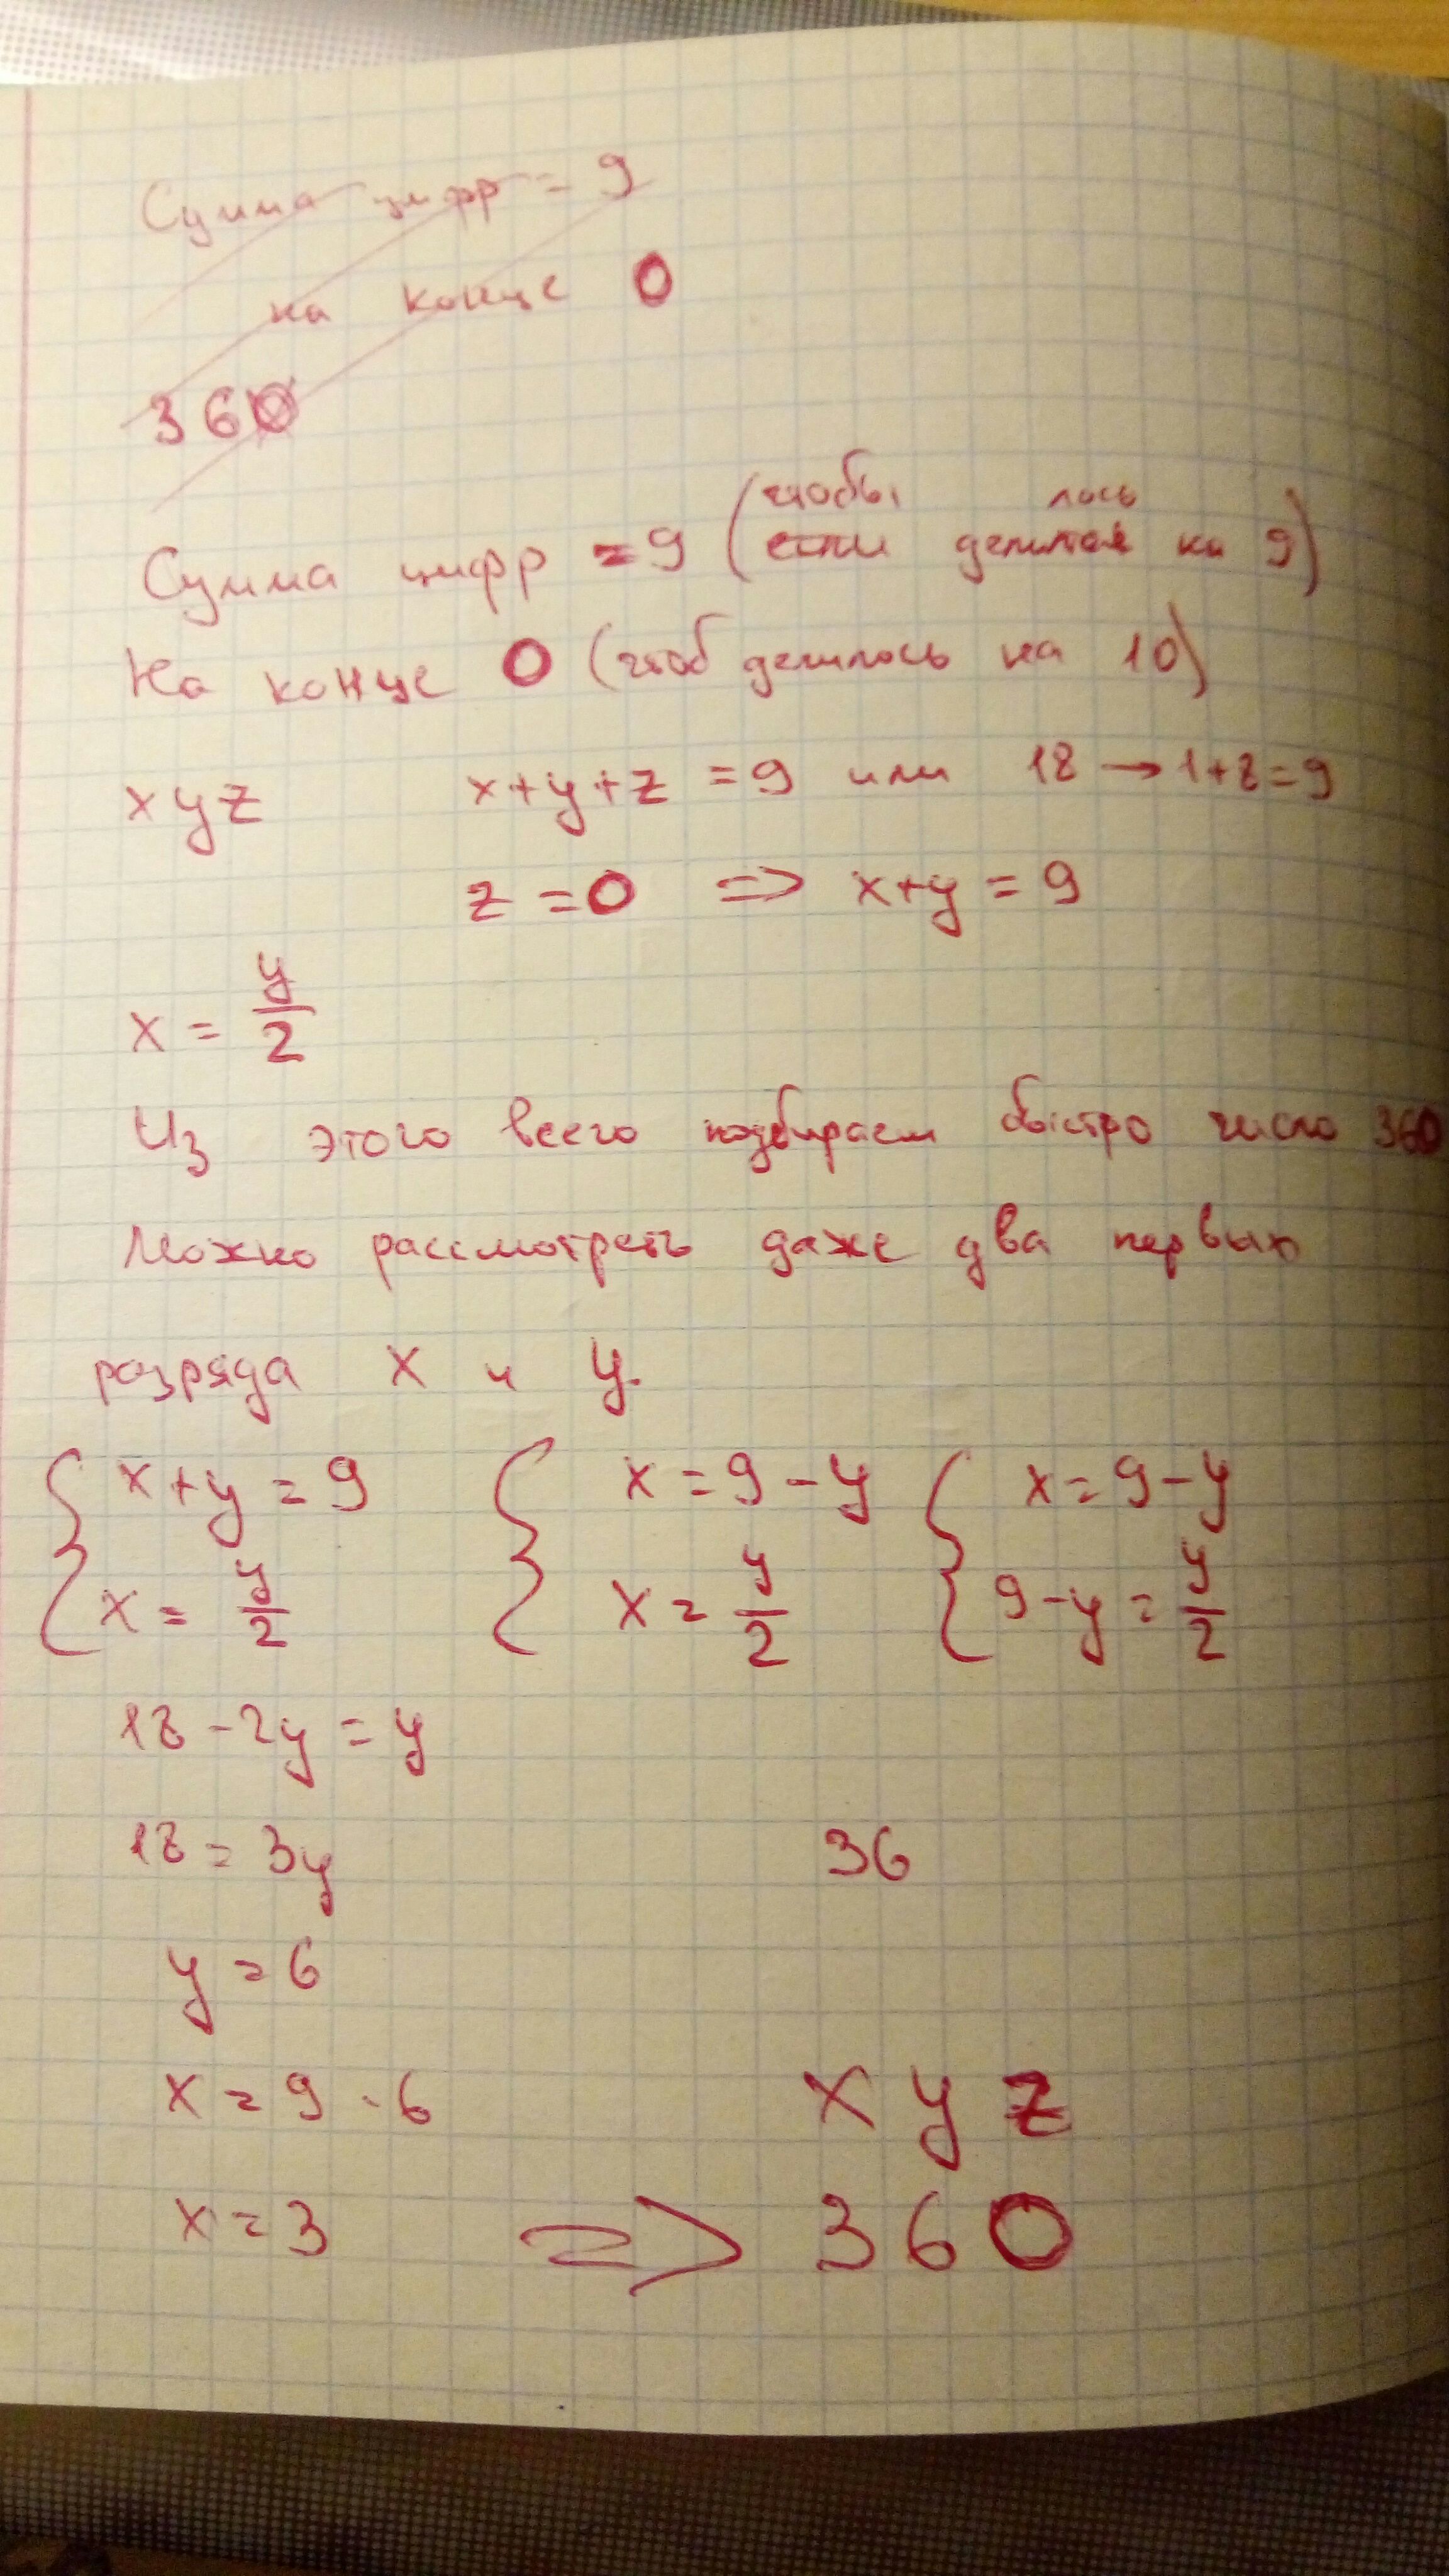 Сумма цифр = 9
на конце 0
360
чтобы лось
Сумма цифр = 9 (если делится на 9)
На конце 0 (чтоб делилось на 10)
xyz x+y+z = 9 или 18 → 1+8=9
z = 0 => x+y = 9
x = y/2
Из этого всего подбираем быстро число 360
Можно рассмотреть даже два первых
разряда x и y.
{ x+y = 9 { x = 9 - y { x = 9 - y
x = y/2 x = y/2 9 - y = y/2
18 - 2y = y
18 = 3y 36
y = 6
x = 9 - 6 x y z
x = 3 => 360